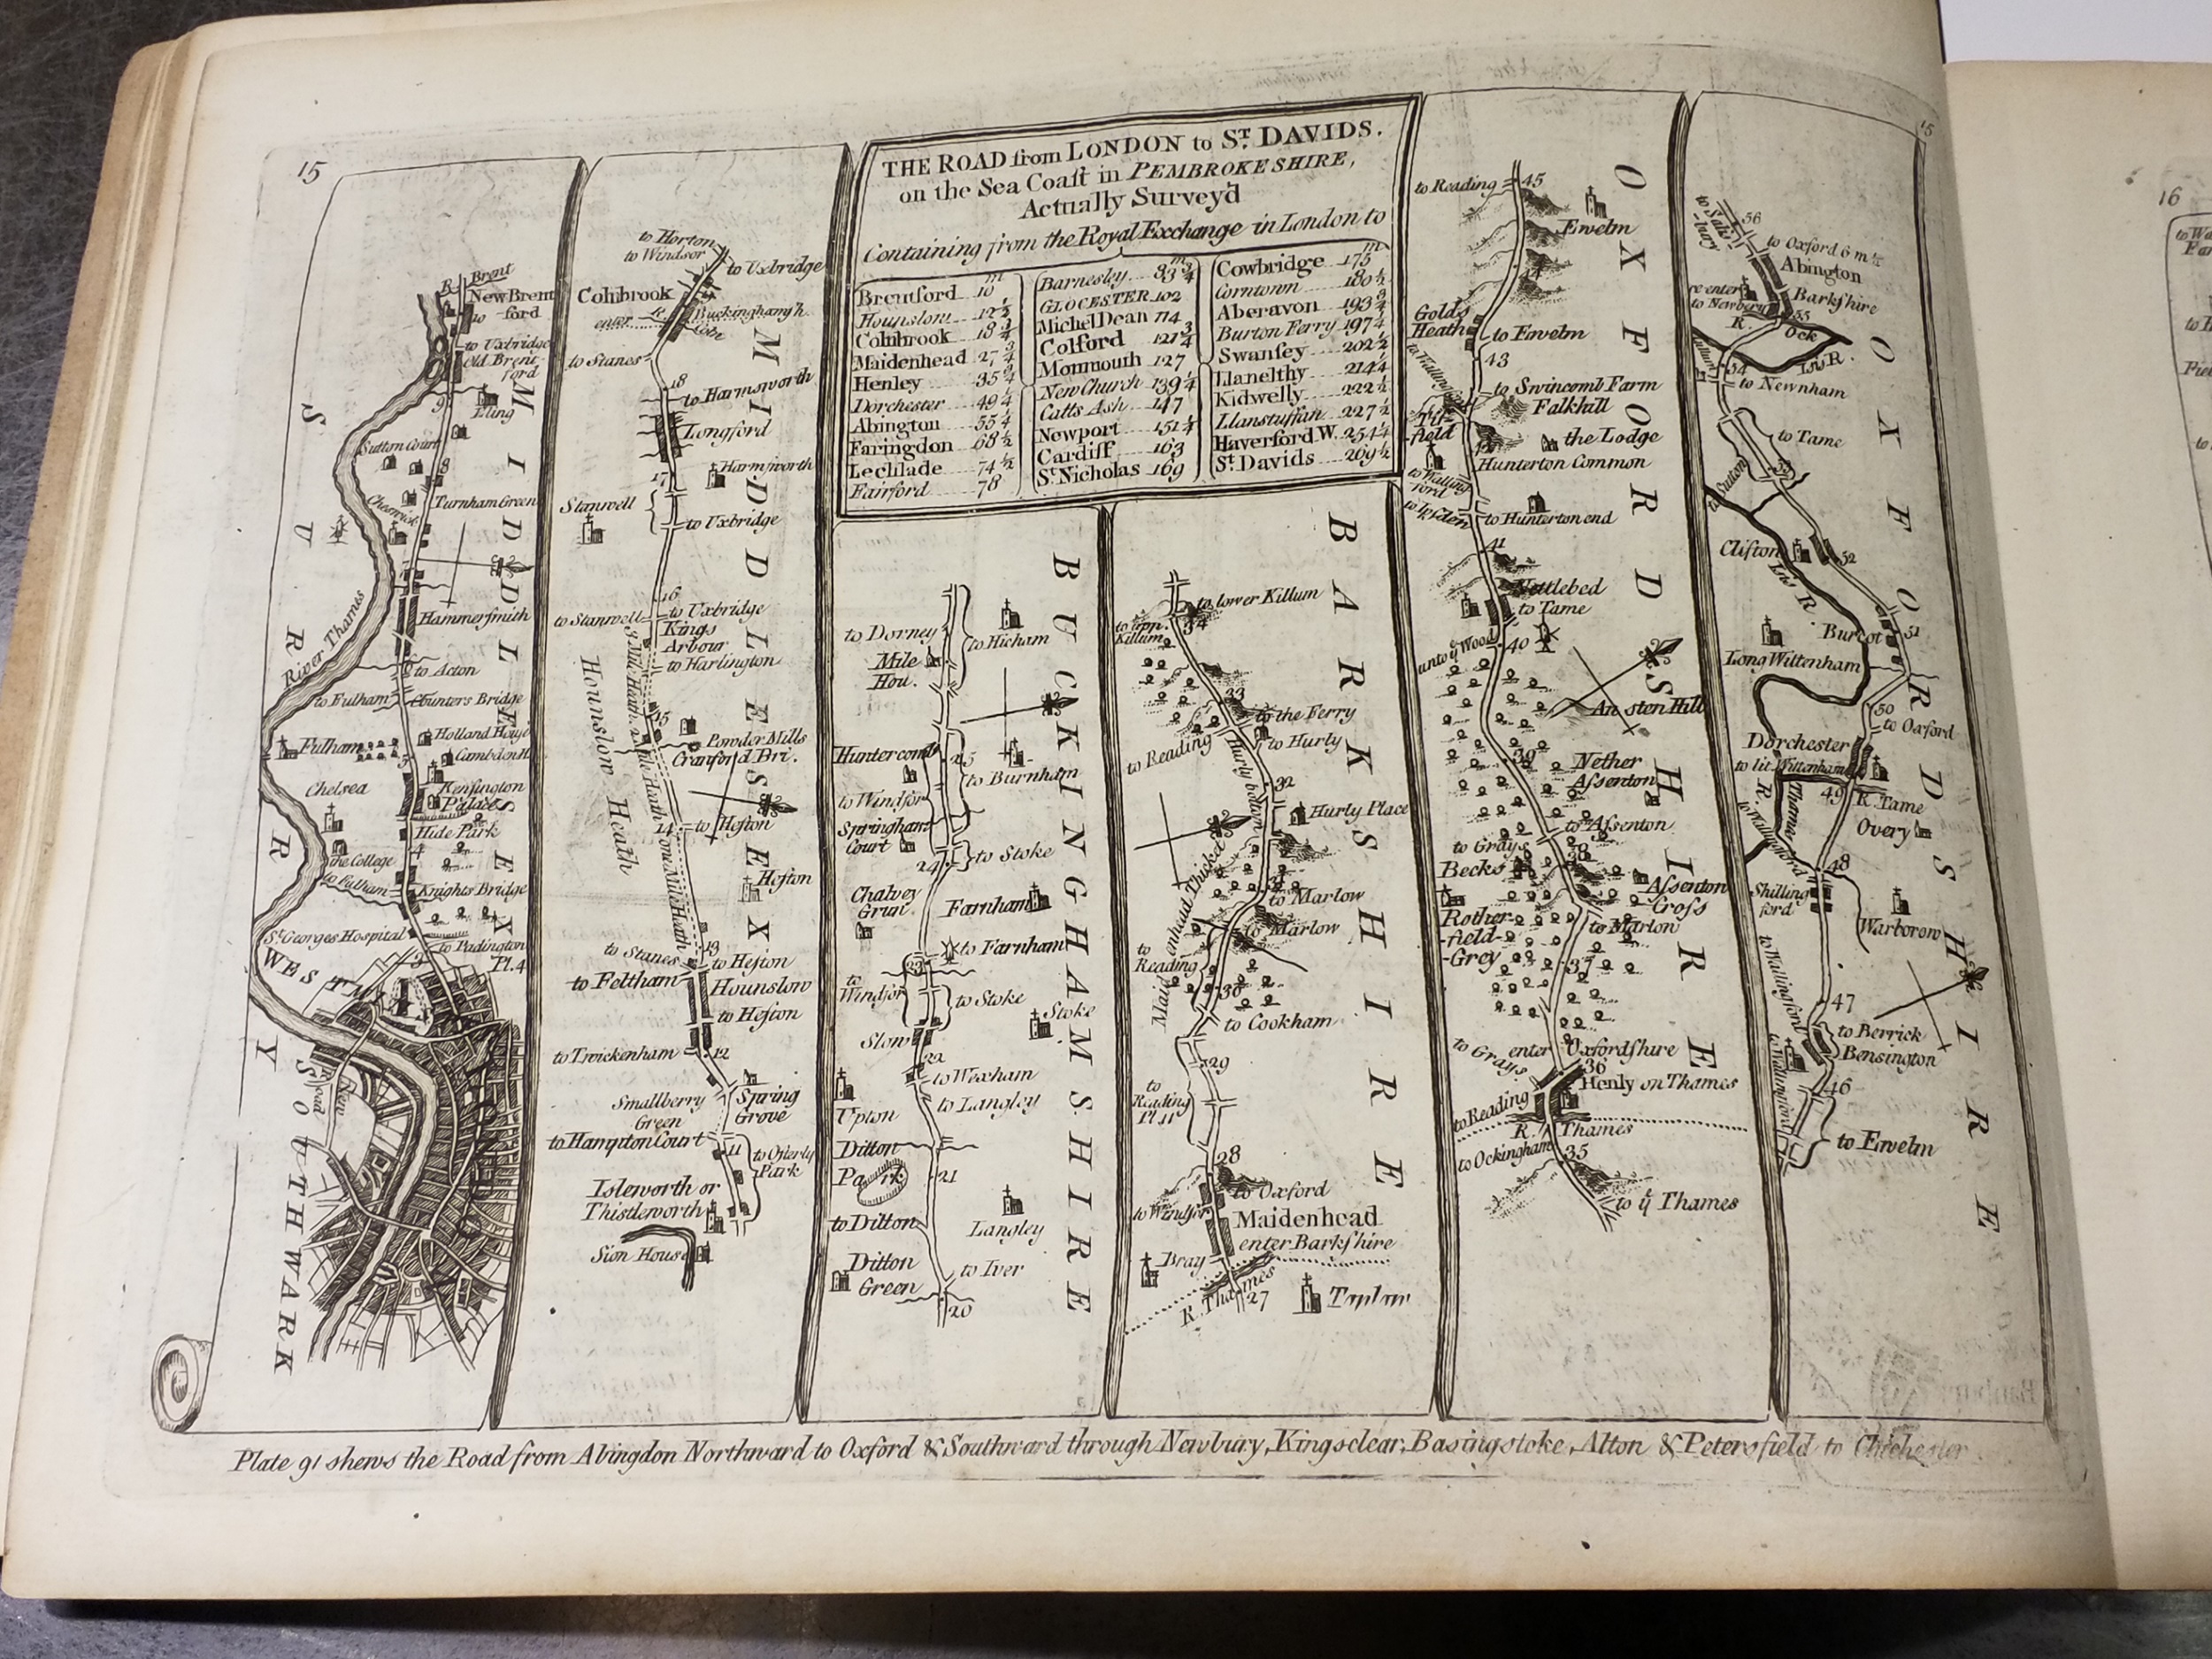 15
THE ROAD from LONDON to ST. DAVIDS.
on the Sea Coast in PEMBROKESHIRE,
Actually Survey'd
Containing from the Royal Exchange in London to
m
Brentford 10
Hounslow 12½
Colnbrook 18¾
Maidenhead 27¾
Henley 35¾
Dorchester 49¼
Abington 55¼
Faringdon 68½
Lechlade 74½
Fairford 78
m
Barnesley 83¾
GLOCESTER 102
Michel Dean 114
Colford 121¾
Monmouth 127
New Church 139¼
Catts Ash 147
Newport 151¼
Cardiff 163
St. Nicholas 169
m
Cowbridge 175
Corntown 180½
Aberavon 193¾
Burton Ferry 197¼
Swansey 202½
Llanelthy 214¼
Kidwelly 222½
Llanstuffan 227½
Haverford W. 254¼
St. Davids 269½
R. Brent
New Brent
ford
to
to Uxbridge
Old Brent
ford
9
Eling
Sutton Court
8
Turnham Green
Cheswick
Hammersmith
River Thames
to Acton
to Fulham
Counters Bridge
Holland House
Fulham
Cambden H
5
Kensington
Palace
Chelsea
Hide Park
4
the College
to Fulham
Knights Bridge
St. Georges Hospital
to Padington
Pl. 4
3
WESTM
New
Road
SURRY
SOUTHWARK
MIDDLESEX
to Horton
to Windsor
to Uxbridge
Colnbrook
enter
Buckinghamsh.
R. Coln
to Stanes
18
to Harmsworth
Longford
Harmsworth
17
Stanwell
to Uxbridge
16
to Stanwell
to Uxbridge
Kings
Arbour
to Harlington
3 Mile Heath
15
Powder Mills
Cranford Bri.
2 Mile Heath
Hounslow Heath
14
to Heston
one Mile Heath
Heston
13
to Stanes
to Heston
to Feltham
Hounslow
to Heston
to Twickenham
12
Smallberry
Green
Spring
Grove
to Hampton Court
11
to Osterly
Park
Isleworth or
Thistleworth
Sion House
MIDDLESEX
to Dorney
to Hicham
Mile
Hou.
Huntercomb
25
to Burnham
to Windsor
Springham
Court
24
to Stoke
Chalvey
Grun
Farnham
to Farnham
23
to
Windsor
to Stoke
Stoke
Slow
22
to Wexham
Upton
to Langley
Ditton
Park
21
to Ditton
Langley
Ditton
Green
to Iver
20
BUCKINGHAMSHIRE
to lower Killum
to upp.
Killum
34
33
to the Ferry
to Reading
to Hurly
Hurly bottom
32
Hurly Place
Maidenhead Thicket
31
to Marlow
to Marlow
to
Reading
30
to Cookham
29
to
Reading
Pl. 11
28
to Oxford
to Windsor
Maidenhead
enter Barkshire
Bray
R. Thames
27
Taplow
BARKSHIRE
to Reading
45
Ewelm
44
Golds
Heath
to Ewelm
43
to Walling
to Swincomb Farm
Falkhill
Tuf-
-field
the Lodge
42
Hunterton Common
to Walling
ford
to Ipsden
to Hunterton end
41
Nettlebed
to Tame
unto ye Wood
40
Ansten Hill
39
Nether
Assenton
to Assenton
to Grays
38
Becks
Assenton
Cross
Rother-
-field-
-Grey
to Marlow
37
to Grays
enter Oxfordshire
36
Henly on Thames
to Reading
R. Thames
to Ockingham
35
to ye Thames
OXFORDSHIRE
15
to Salis
-bury
56
to Oxford 6 m
Abington
re enter
Barkshire
to Newbery
55
R. Ock
Isis R.
54
to Newnham
to Tame
to Sutton
53
Clifton
52
Isis R.
Burcot
51
Long Wittenham
50
to Oxford
Dorchester
to lit. Wittenham
49
R. Tame
R. Thames
Overy
to Wallingford
48
Shilling
ford
Warborow
to Wallingford
47
to Berrick
Bensington
to Wallingford
46
to Ewelm
OXFORDSHIRE
Plate 91 shews the Road from Abingdon Northward to Oxford & Southward through Newbury, Kingsclear, Basingstoke, Alton & Petersfield to Chichester
16